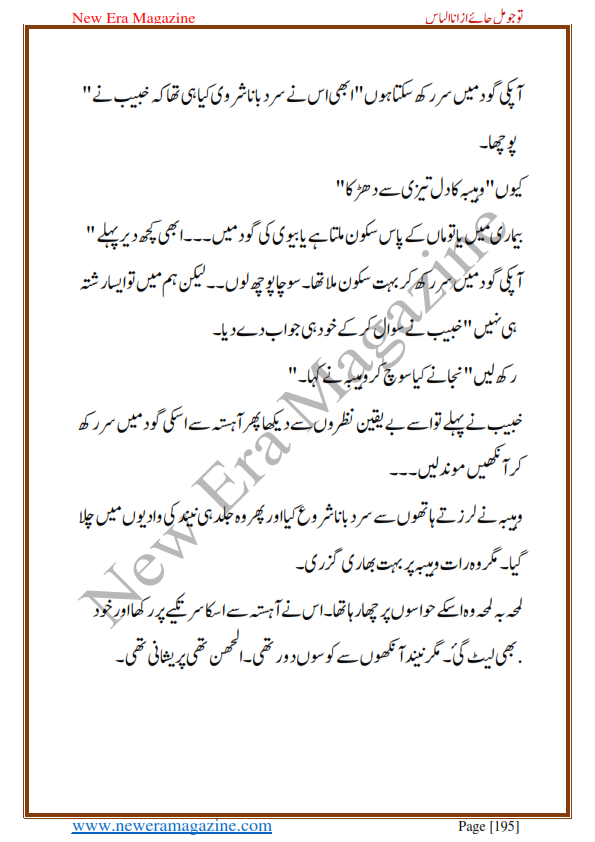 New Era Magazine
تو جو مل جائے از انا الیاس
آپکی گود میں سر رکھ سکتا ہوں" ابھی اس نے سر دبانا شروی کیا ہی تھا کہ خبیب نے"
پوچھا۔
کیوں" وہیبہ کا دل تیزی سے دھڑکا"
بیماری میں یا تو ماں کے پاس سکون ملتا ہے یا بیوی کی گود میں۔۔۔ ابھی کچھ دیر پہلے"
آپکی گود میں سر رکھ کر بہت سکون ملا تھا۔ سوچا پوچھ لوں۔۔ لیکن ہم میں تو ایسا رشتہ
ہی نہیں" خبیب نے سوال کر کے خود ہی جواب دے دیا۔
رکھ لیں" نجانے کیا سوچ کر وہیبہ نے کہا۔"
خبیب نے پہلے تو اسے بے یقین نظروں سے دیکھا پھر آہستہ سے اسکی گود میں سر رکھ
کر آنکھیں موند لیں۔۔۔
وہیبہ نے لرزتے ہاتھوں سے سر دبانا شروع کیا اور پھر وہ جلد ہی نیند کی وادیوں میں چلا
گیا۔ مگر وہ رات وہیبہ پر بہت بھاری گزری۔
لمحہ بہ لمحہ وہ اسکے حواسوں پر چھا رہا تھا۔ اس نے آہستہ سے اسکا سر تکیے پر رکھا اور خود
بھی لیٹ گئ۔ مگر نیند آنکھوں سے کوسوں دور تھی۔ الجھن تھی پریشانی تھی۔.
New Era Magazine
www.neweramagazine.com
Page [195]